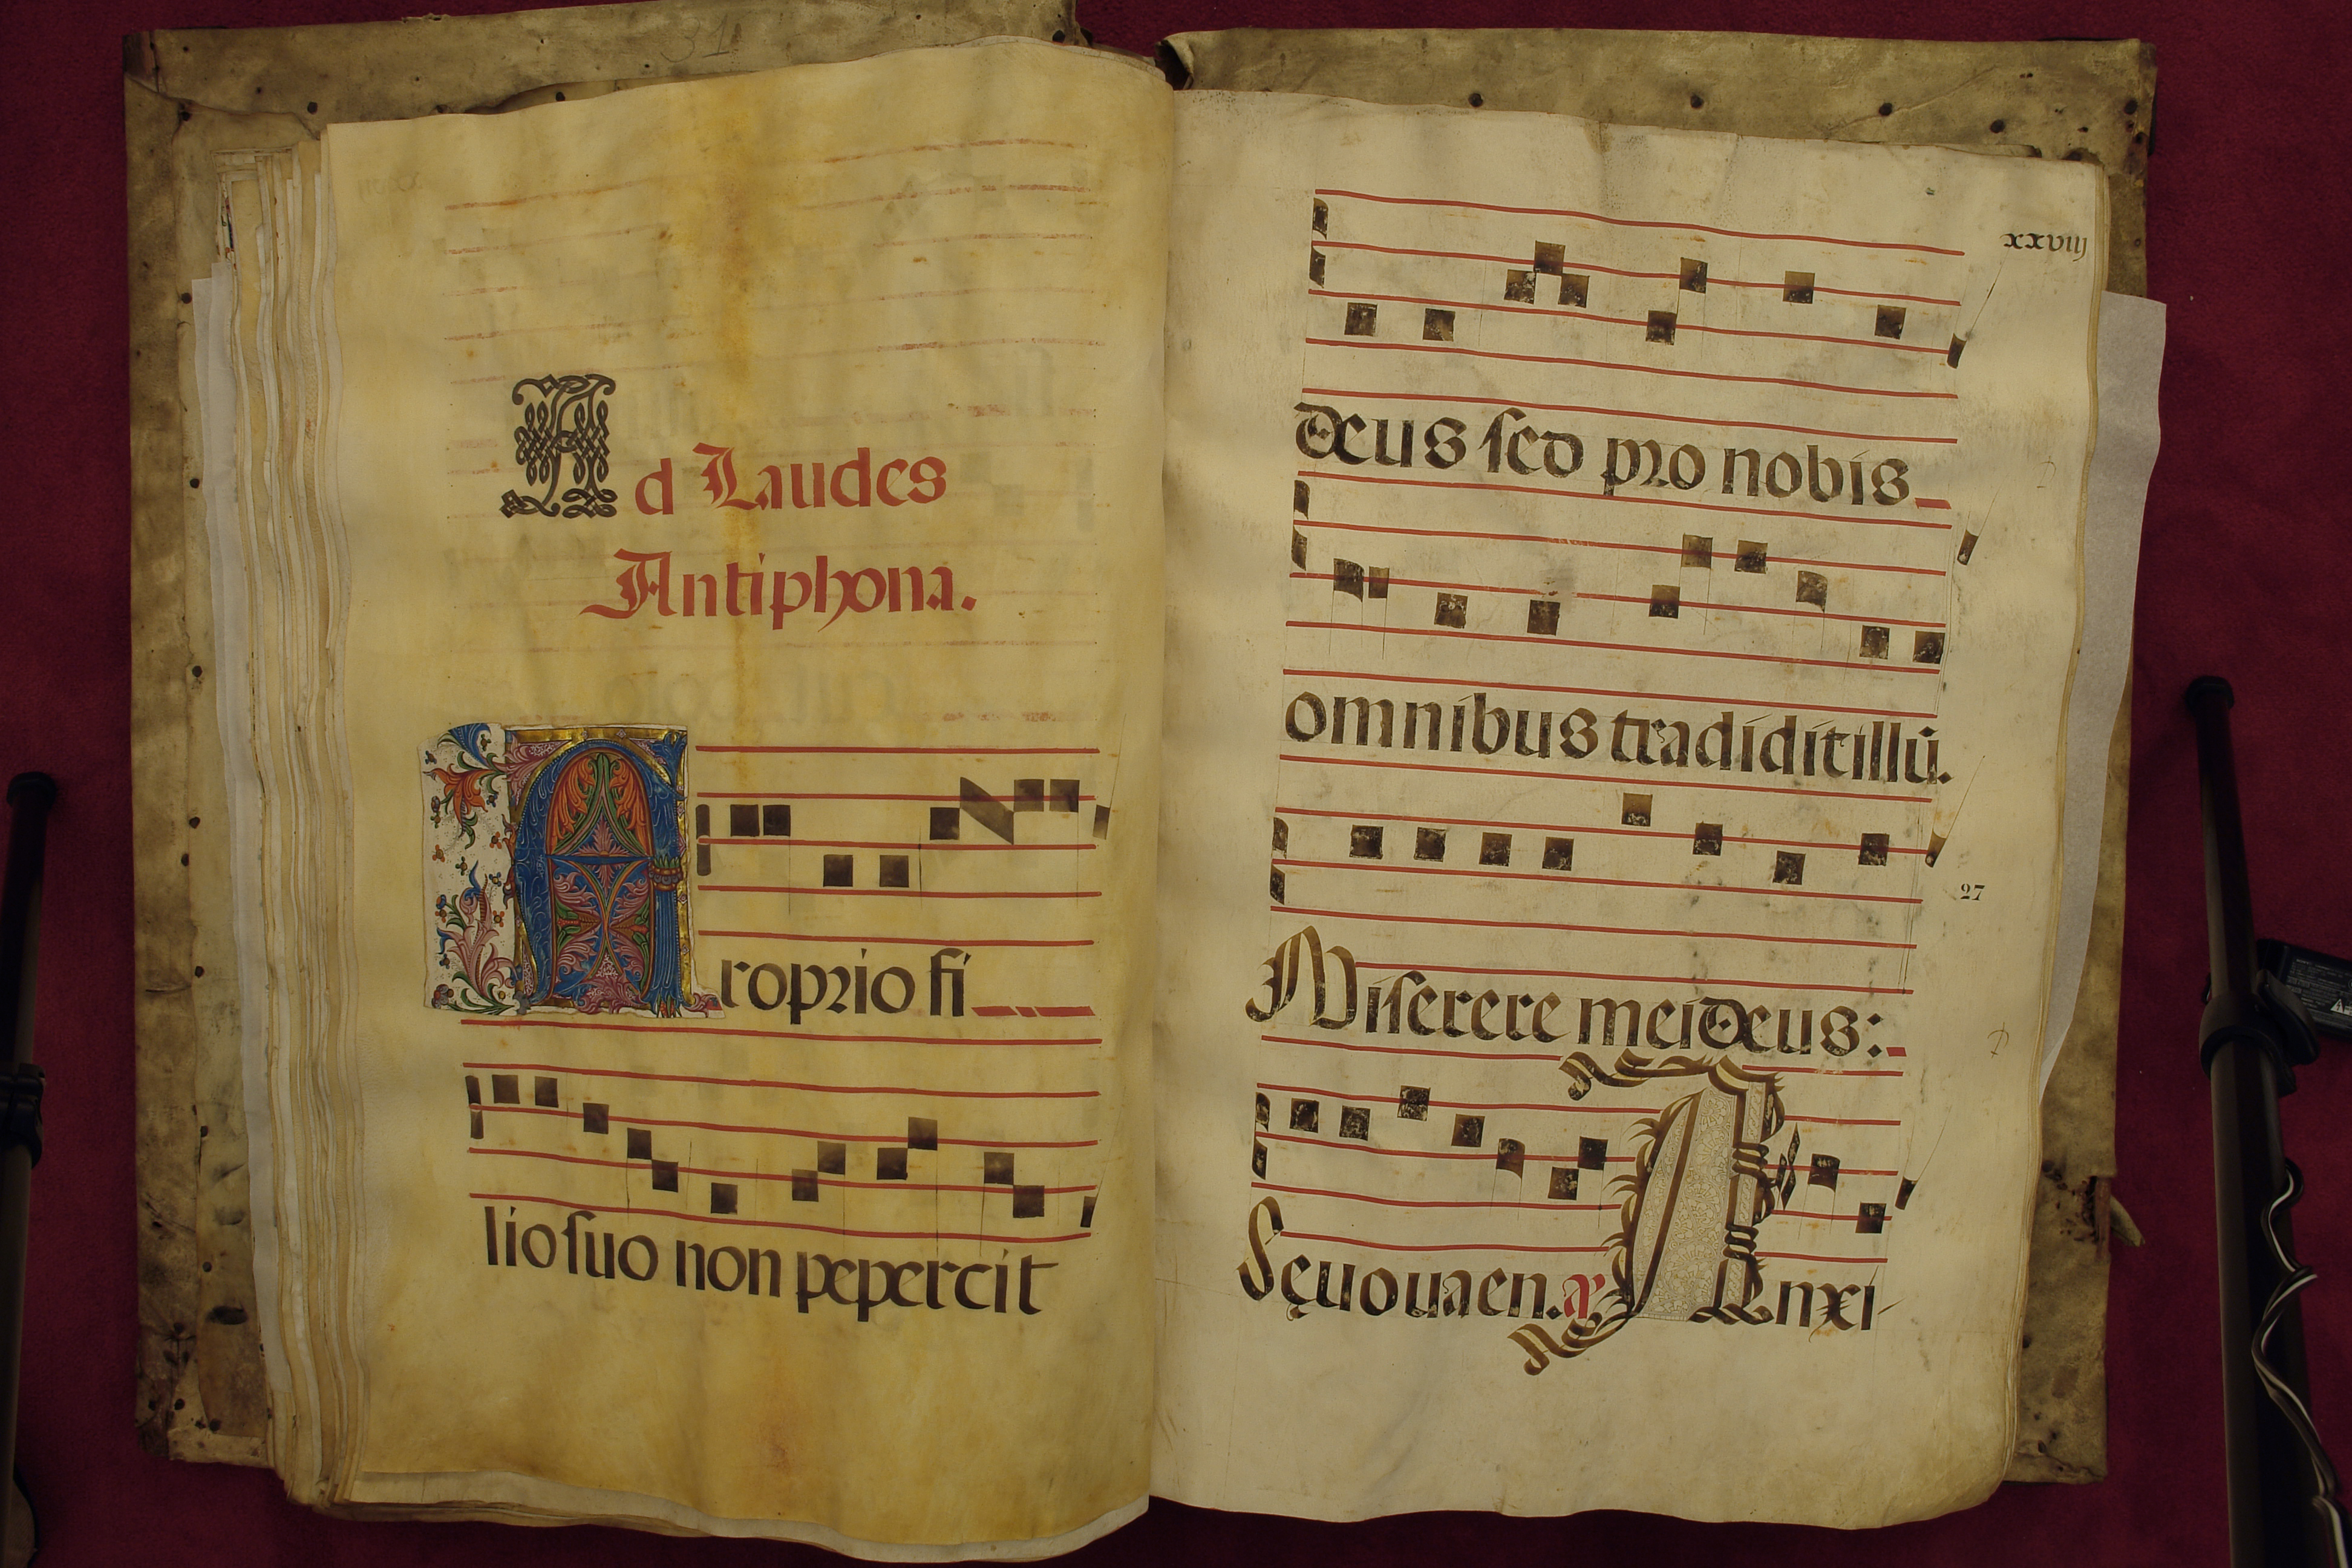 Ad Laudes
Antiphona.
Aroprio fi
lio suo non pepercit
xxviij
deus sed pro nobis
omnibus tradidit illū.
27
Miserere mei deus:
Seuouaen. a Anxi